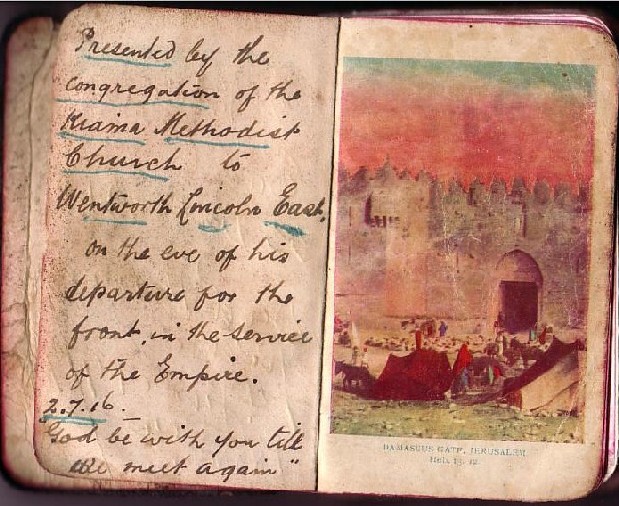 Presented by the
congregation of the
Kiama Methodist
Church to
Wentworth Lincoln East,
on the eve of his
departure for the
front, in the service
of the Empire.
2.7.16.
God be with you till
we meet again"
DAMASCUS GATE, JERUSALEM.
Heb. 13. 12.